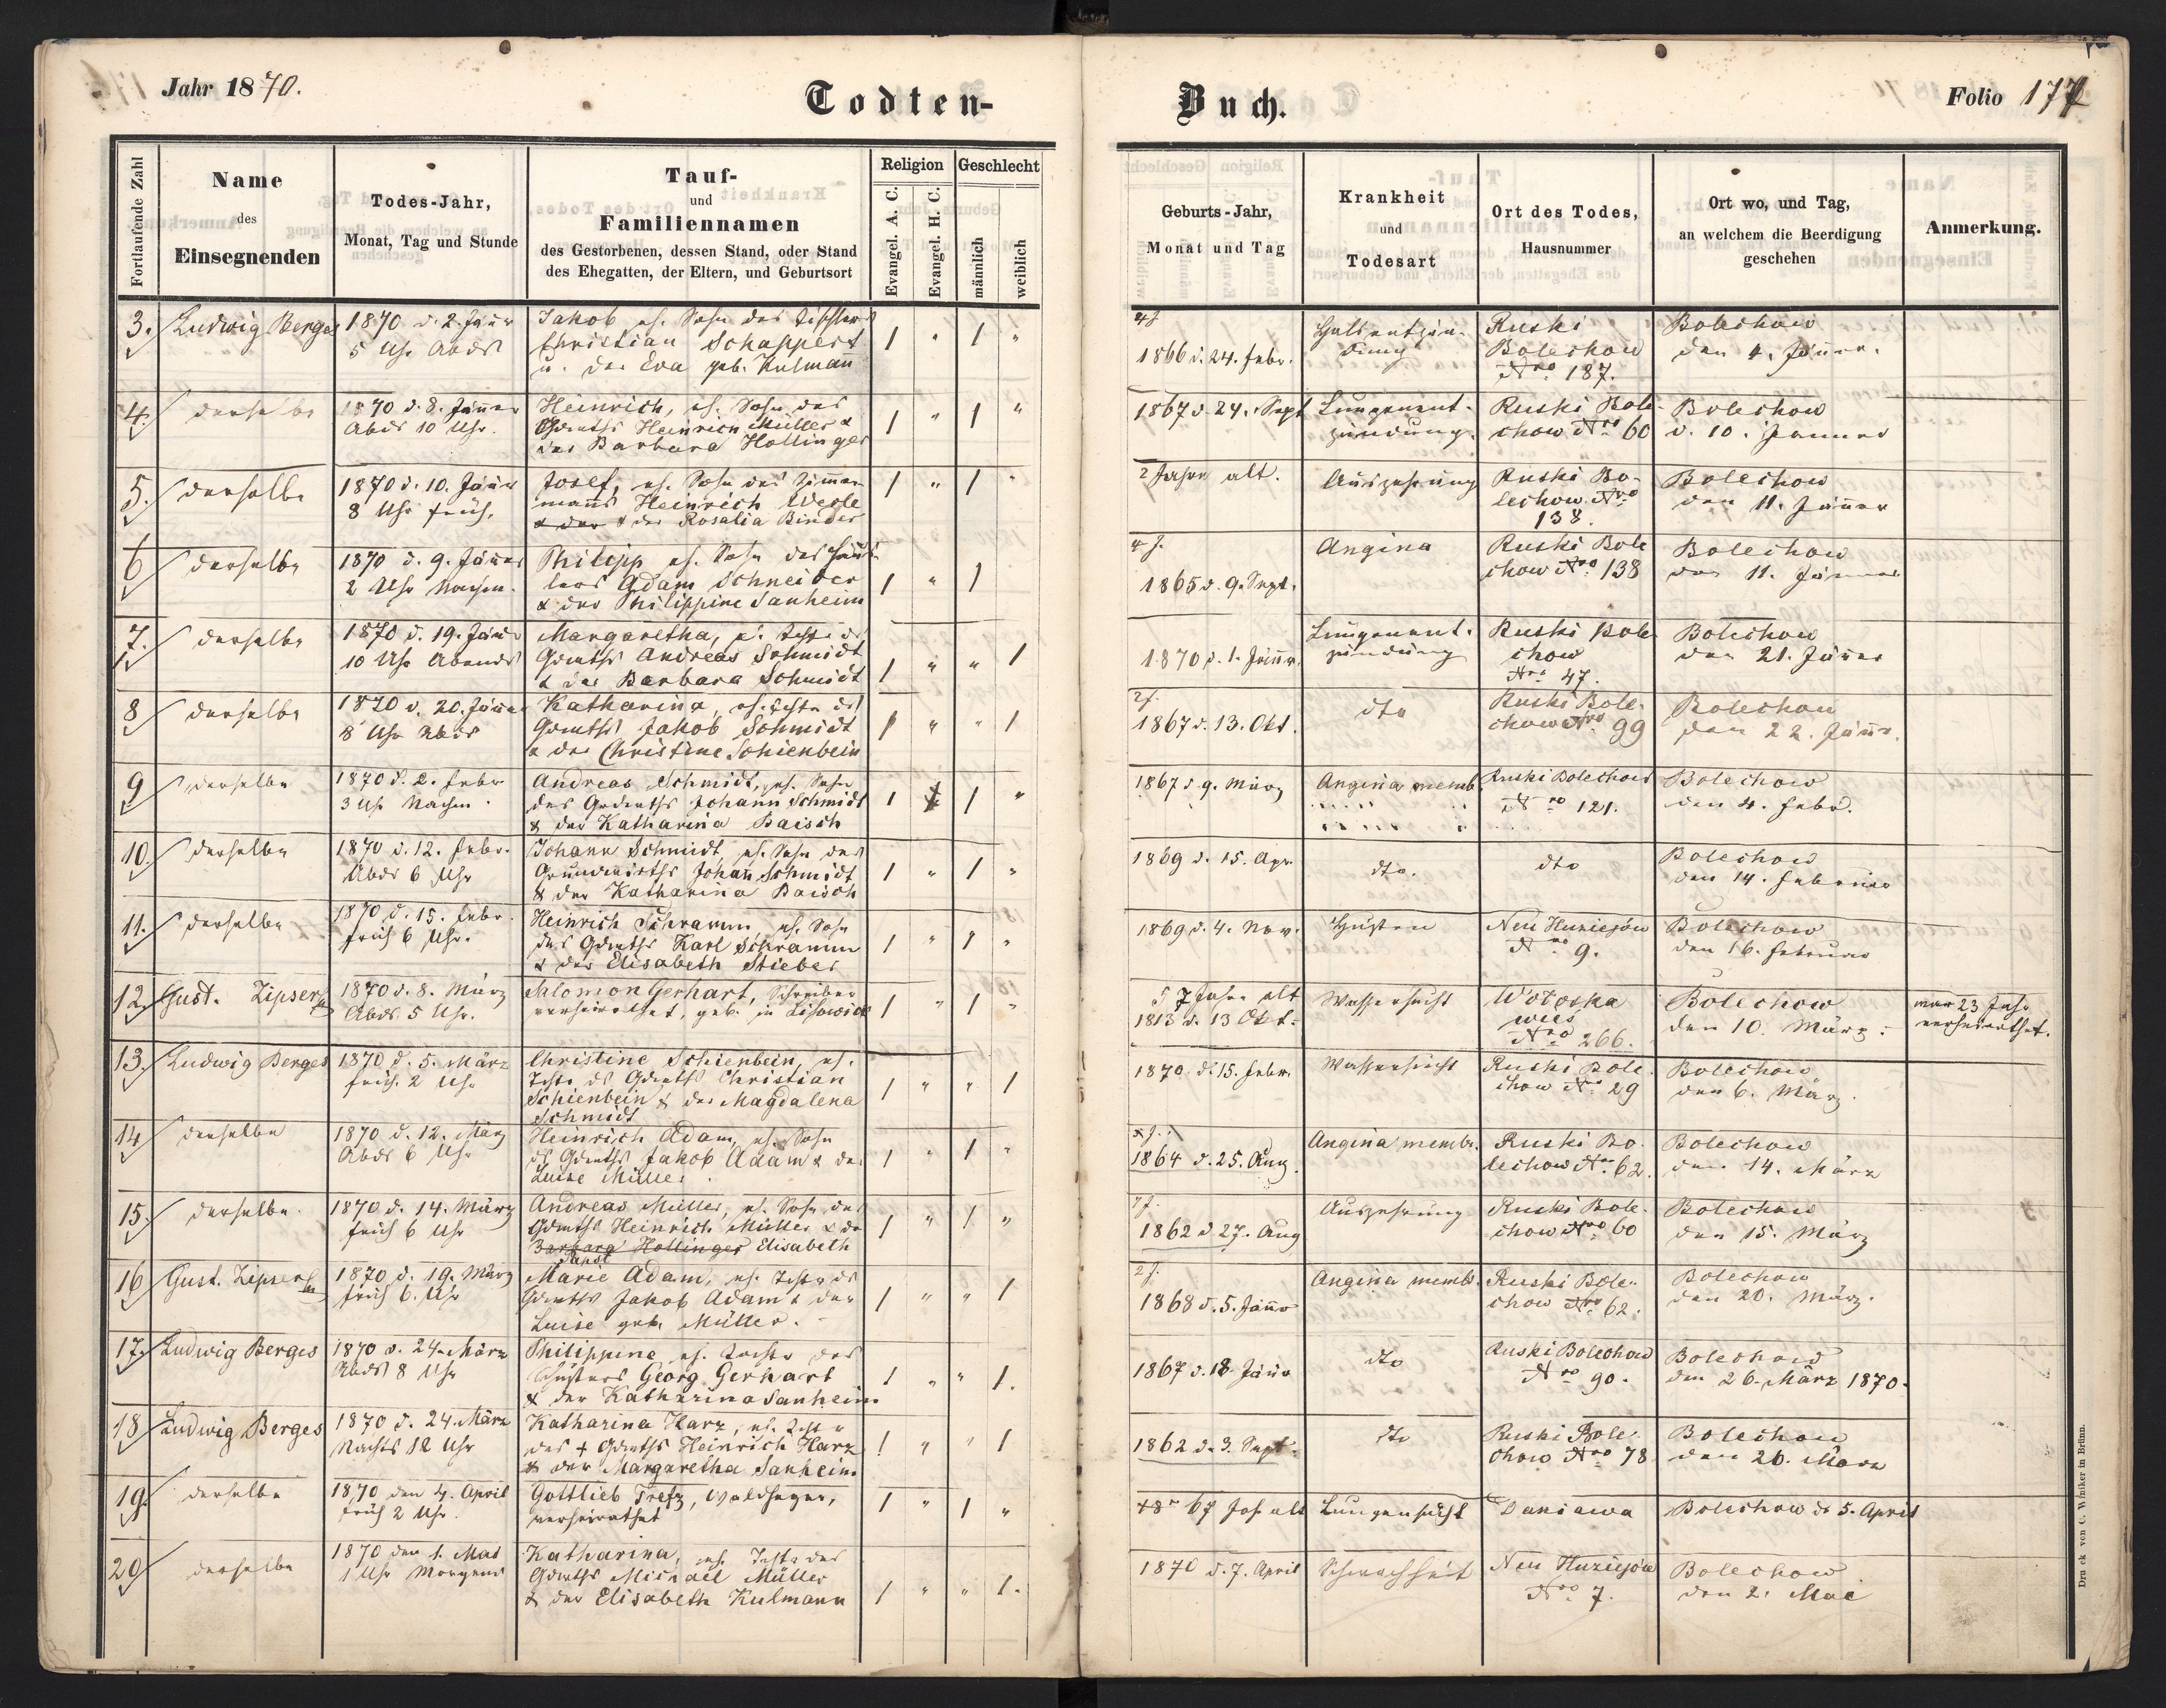 Jahr 1870.
Todten-
Buch.
Folio 177
Fortlaufende Zahl
Name
des
Einsegnenden
Todes-Jahr,
Monat, Tag und Stunde
Tauf-
und
Familiennamen
des Gestorbenen, dessen Stand, oder Stand
des Ehegatten, der Eltern, und Geburtsort
Religion
Evangel. A. C.
Evangel. H. C.
Geschlecht
männlich
weiblich
Geburts-Jahr,
Monat und Tag
Krankheit
und
Todesart
Ort des Todes,
Hausnummer
Ort wo, und Tag,
an welchem die Beerdigung
geschehen
Anmerkung.
3. Ludwig Berges
1870 d. 2. Jänr
5 Uhr Abds
Jakob eh. Sohn des Tischlers
Christian Schappert
u. der Eva geb. Kulmann
/ " / "
4 J.
1866 d. 24. Febr.
Halsentzün-
dung
Ruski
Bolechow
Nro 187.
Bolechow
den 4. Jänner.
4. derselbe
1870 d. 8. Jänner
Abds 10 Uhr.
Heinrich, eh. Sohn des
Grdwths Heinrich Müller &
der Barbara Hollinger
/ " / "
1867 d. 24. Sept
Lungenent-
zündung.
Ruski Bole-
chow Nro 60
Bolechow
d. 10. Jänner
5. derselbe
1870 d. 10. Jänner
8 Uhr früh.
Josef, eh. Sohn des Zimmer
manns Heinrich Weste
& der & der Rosalia Binder
/ " / "
2 Jahre alt.
Auszehrung
Ruski Bo-
lechow Nro
138.
Bolechow
den 11. Jänner
6 derselbe
1870 d. 9. Jänner
2 Uhr Nachm.
Philipp eh. Sohn des Häus-
lers Adam Schneider
& der Philippine Sanheim
/ " /
4 J.
1865 d. 9. Sept.
Angina
Ruski Bole
chow Nro 138
Bolechow
den 11. Jänner
7. derselbe
1870 d. 19. Jänr
10 Uhr Abends
Margaretha, eh. Tochter d.
Grdwths Andreas Schmidt
& der Barbara Schmidt
/ " " /
1870 d. 1. Jänr.
Lungenent-
zündung
Ruski Bole
chow
Nro 47.
Bolechow
den 21. Jänner
8 derselbe
1870 d. 20. Jänner
8 Uhr Abds
Katharina, eh. Tochter des
Grdwths Jakob Schmidt
& der Christine Schienbein
/ " " /
2 J.
1867 d. 13. Okt.
dto
Ruski Bole-
chow Nro 99
Bolechow
den 22. Jänr.
9 derselbe
1870 d. 2. Febr
3 Uhr Nachm.
Andreas Schmidt, eh. Sohn
des Grdwths Johann Schmidt
& der Katharina Baisch
/ / "
1867 d 9. März
Angina memb.
Ruski Bolechow
Nro 121.
Bolechow
den 4. Febr.
10. derselbe
1870 d. 12. Febr.
Abds 6 Uhr
Johann Schmidt, eh. Sohn des
Grundwirths Johann Schmidt
& der Katharina Baisch
/ " / "
1869 d. 15. Apr.
dto.
dto
Bolechow
den 14. Februar
11. derselbe
1870 d. 15. Febr.
früh 6 Uhr.
Heinrich Schramm, eh. Sohn
des Grdwths Karl Schramm
& der Elisabeth Stieber
/ " / "
1869 d. 4. Nov.
Husten
Neu Huziejów
Nro 9.
Bolechow
den 16. Februar
12. Gust. Zipser
1870 d. 8. März
Abds 5 Uhr.
Salomon Gerhart, Schreiber
verheirathet, geb. in Lisowice
/ " / "
57 Jahre alt
1813 d. 13 Okt.
Wassersucht
Wotoska
wies
Nro 266.
Bolechow
den 10. März.
war 23 Jahr
verheirathet.
13. Ludwig Berges
1870 d. 5. März
früh 2 Uhr
Christine Schienbein, eh.
Tocht. ds Grdwths Christian
Schienbein & der Magdalena
Schmidt
/ " " /
1870 d. 15. Febr.
Wassersucht
Ruski Bole-
chow Nro 29
Bolechow
den 6. März.
14 derselbe
1870 d. 12. März
Abds 6 Uhr
Heinrich Adam, eh. Sohn
ds Grdwths Jakob Adam & der
Luise Müller.
/ " / "
1864 d. 25. Aug.
Angina membr.
Ruski Bo-
lechow Nro 62.
Bolechow
den 14. März
15. derselbe
1870 d. 14. März
früh 6 Uhr
Andreas Müller, eh. Sohn des
Grdwths Heinrich Müller & der
Barbara Hollinger Elisabeth
/ " / "
7 J.
1862 d 27. Aug
Auszehrung
Ruski Bole-
chow Nro 60
Bolechow
den 15. März
16 Gust. Zipser
1870 d. 19. März
früh 6. Uhr
Marie Adam, eh. Tocht. ds
Grdwths Jakob Adam & der
Luise geb. Müller.
/ " " /
2 J.
1868 d. 5. Jänr
Angina memb.
Ruski Bole-
chow Nro 62.
Bolechow
den 20. März.
17. Ludwig Berges
1870 d. 24. März
Abds 8 Uhr
Philippine eh. Tochter des
Schusters Georg Gerhart
& der Katharina Sanheim
/ " " /.
1867 d. 18 Jänr
dto
Ruski Bolechow
Nro 90.
Bolechow
den 26. März 1870.
18 Ludwig Berges
1870 d. 24. März
Nachts 12 Uhr
Katharina Harz, eh. Tochter
des + Grdwths Heinrich Harz
& der Margaretha Sanheim
/ " " /
1862 d. 3. Sept.
dto
Ruski Bole-
chow Nro 78
Bolechow
den 26. März
19. derselbe
1870 den 4. April
früh 2 Uhr.
Gottlieb Trefz, Waldheger,
verheirathet
/ " / "
67 Jahr alt
Lungensucht
Daniawa
Bolechow ds 5. April
20 derselbe
1870 den 1. Mai
1 Uhr Morgens
Katharina, eh. Tocht. des
Grdwths Michael Müller
& der Elisabeth Kulmann
/ " " /.
1870 d. 7. April
Schwachheit
Neu Huziejów
Nro 7.
Bolechow
den 2. Mai
Druck von C. Winiker in Brünn.